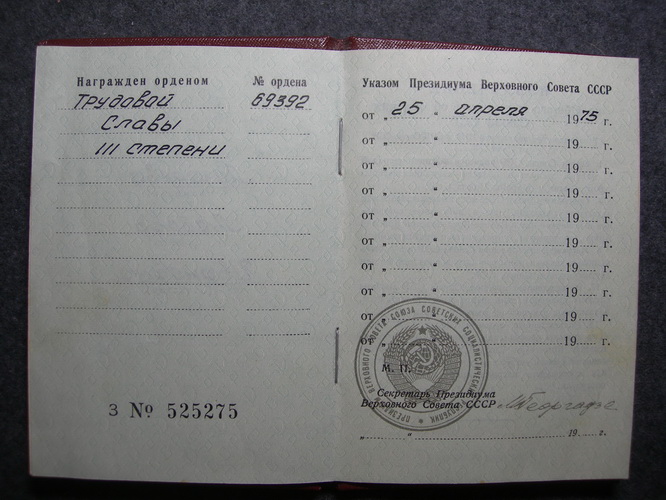 Награжден орденом
№ ордена
Трудовой
69392
Славы
III степени
З № 525275
Указом Президиума Верховного Совета СССР
от „ 25 “ апреля 1975 г.
от „ “ 19 г.
от „ “ 19 г.
от „ “ 19 г.
от „ “ 19 г.
от „ “ 19 г.
от „ “ 19 г.
от „ “ 19 г.
от „ “ 19 г.
от „ “ 19 г.
М. П.
Секретарь Президиума
Верховного Совета СССР
МГеоргадзе
„ “ 19 г.
ПРЕЗИДИУМ ВЕРХОВНОГО СОВЕТА СОЮЗА СОВЕТСКИХ СОЦИАЛИСТИЧЕСКИХ РЕСПУБЛИК